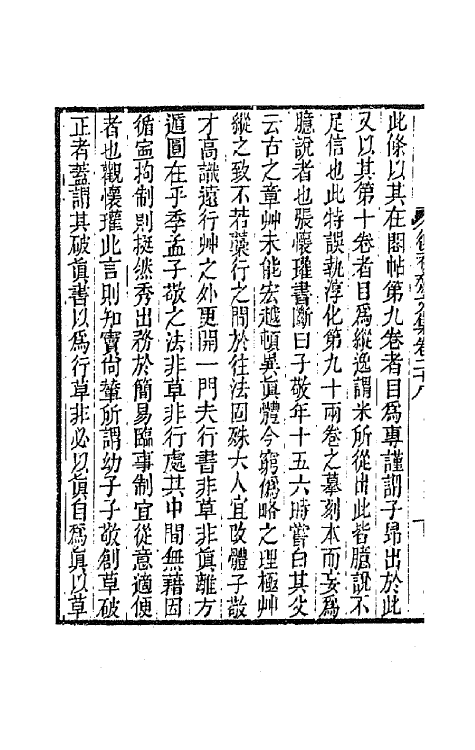 此條以其在閣帖第九卷者目爲專謹謂子昻出於此
又以其第十卷者目爲縱逸謂米所從出此皆臆說不
足信也此特誤執淳化第九十兩卷之摹刻本而妄爲
臆說者也張懷瓘書斷曰子敬年十五六時嘗白其父
云古之章艸未能宏越頓異眞體今窮僞略之理極艸
縱之致不若藁行之間於往法固殊大人宜改體子敬
才高識遠行艸之外更開一門夫行書非草非眞離方
遁圓在乎季孟子敬之法非草非行處其中間無藉因
循寍拘制則挺然秀出務於簡易臨事制宜從意適便
者也觀懷瓘此言則知竇尚輦所謂幼子子敬創草破
正者蓋謂其破眞書以爲行草非必以眞自爲眞以草